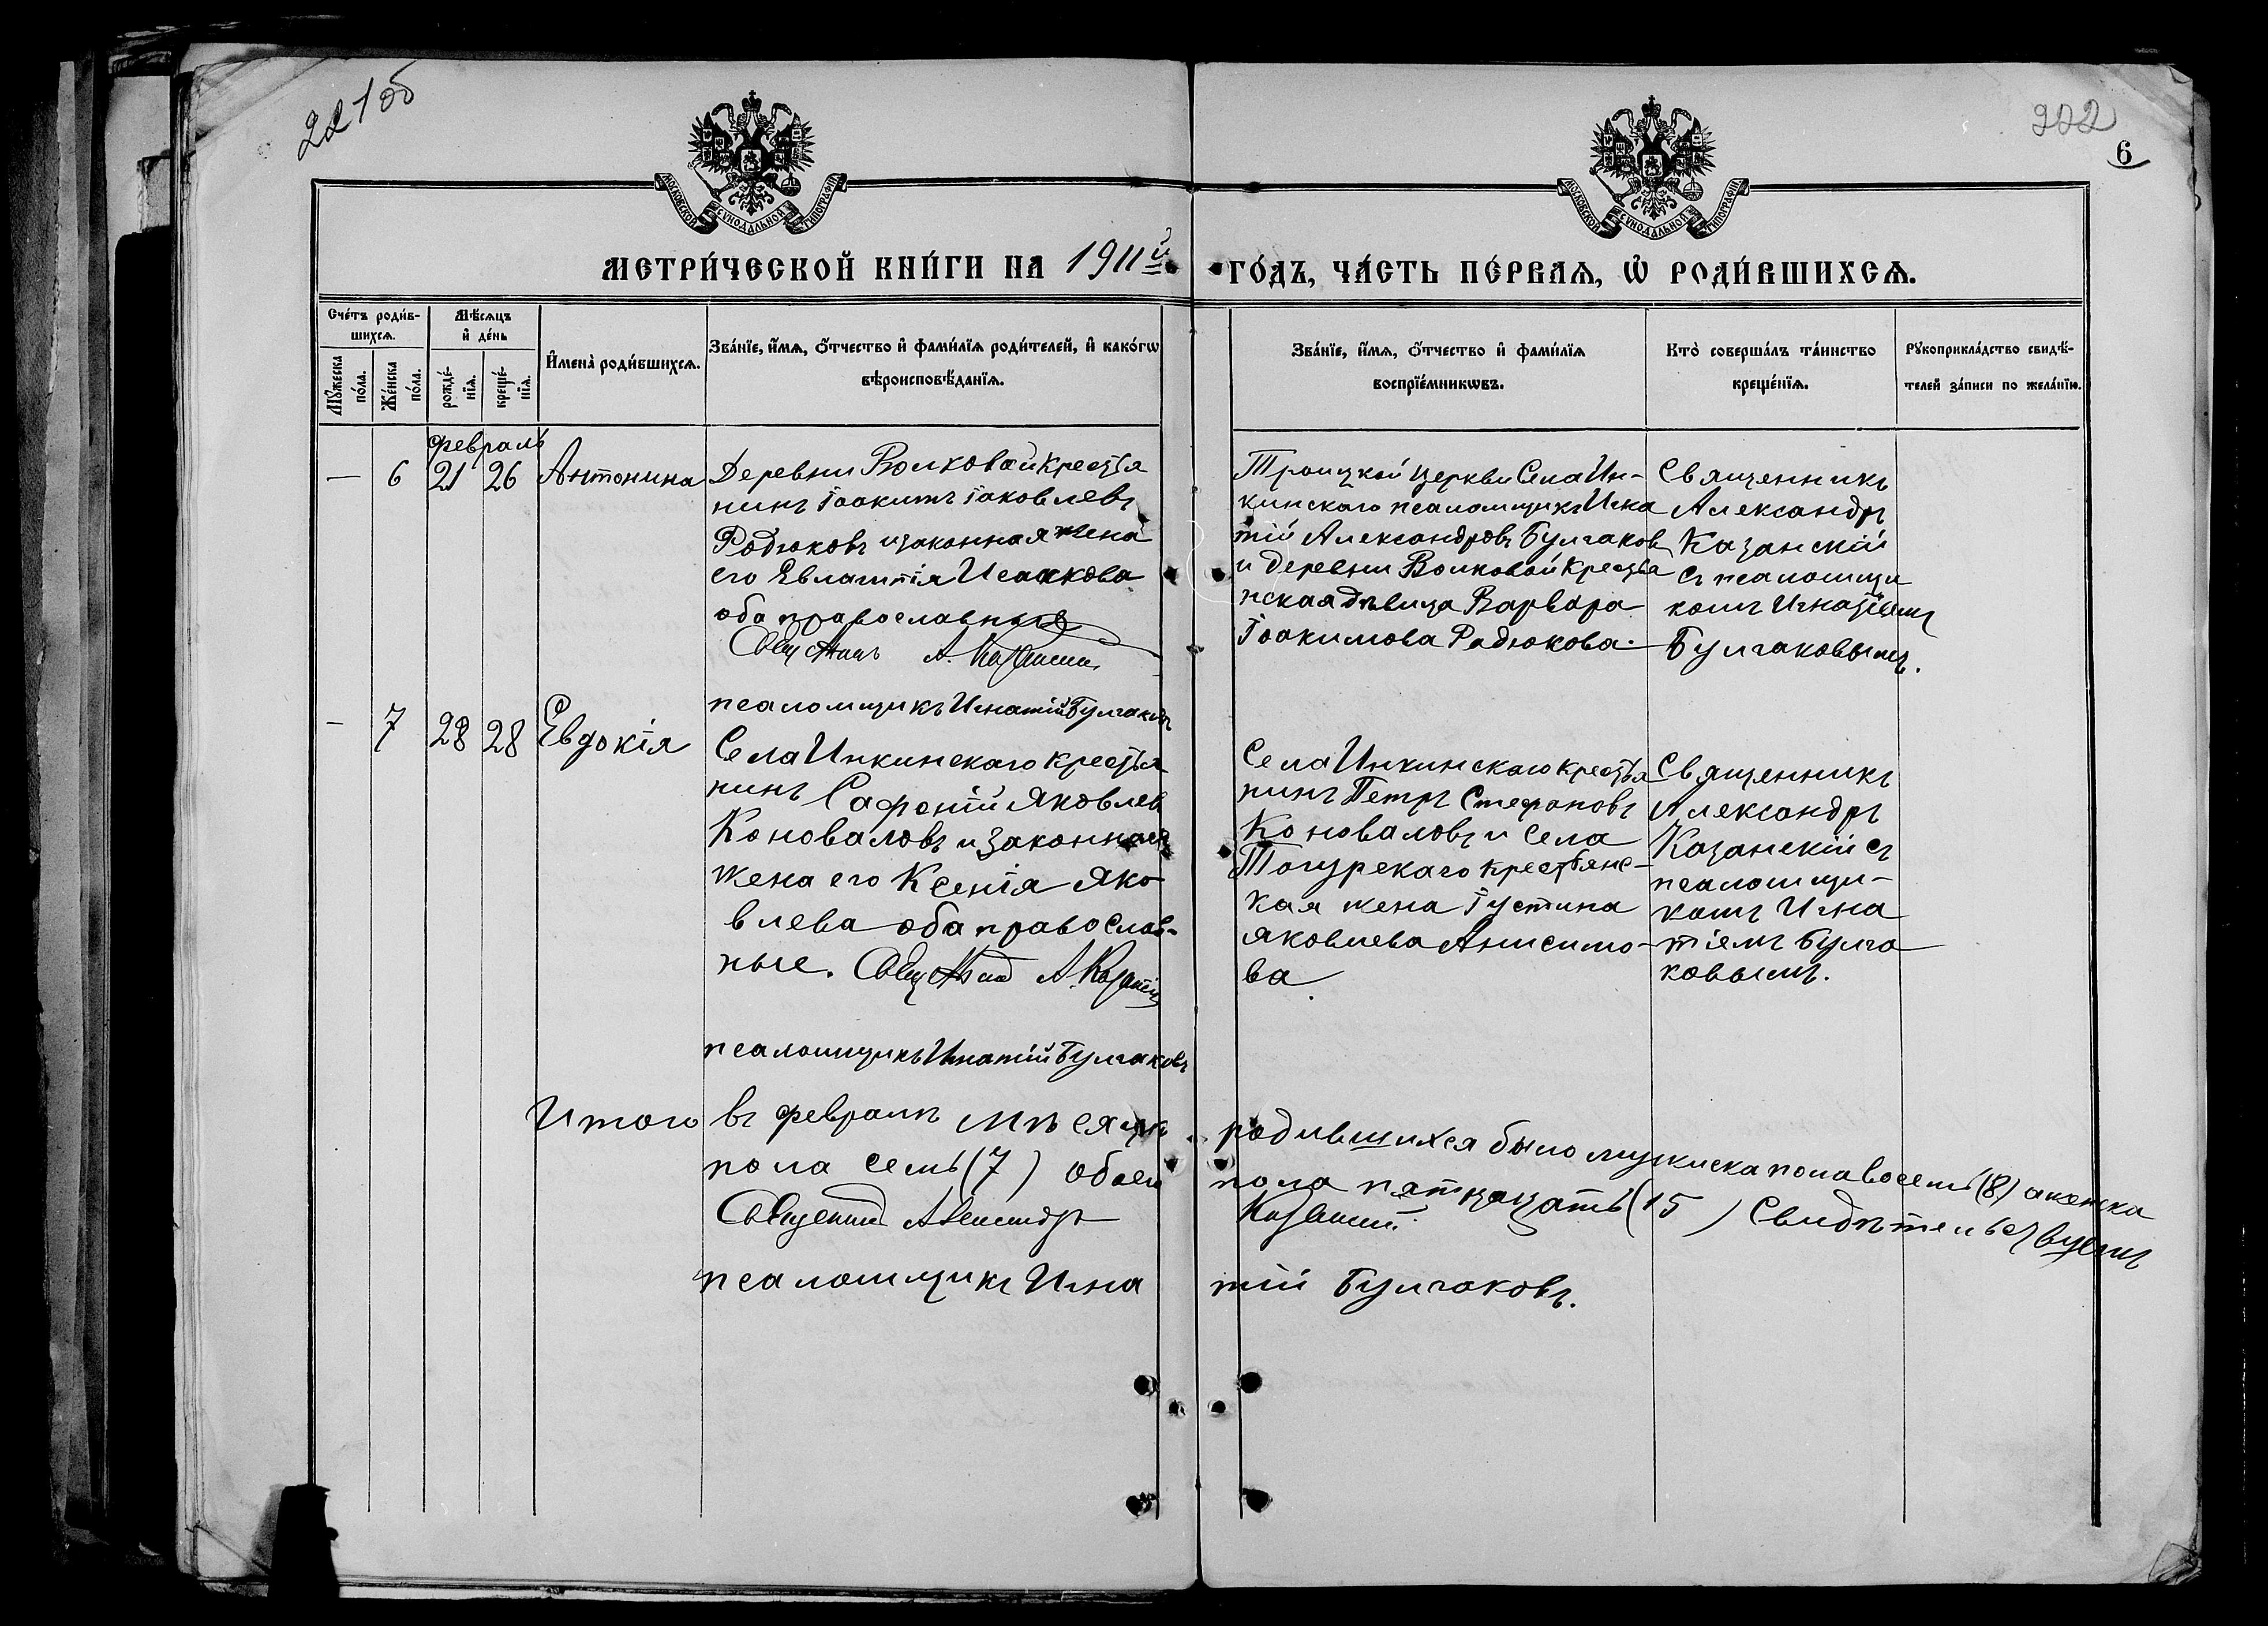 221об
202
6
МОСКОВСКОЙ СУНОДАЛЬНОЙ ТИПОГРАФІИ
МОСКОВСКОЙ СУНОДАЛЬНОЙ ТИПОГРАФІИ
МЕТРИ́ЧЕСКОЙ КНИ́ГИ НА 1911й
ГО́ДЪ, ЧА́СТЬ ПЕ́РВАѦ, Ѡ҆ РОДИ́ВШИХСѦ.
Сче́тъ роди́в-
шихсѧ.
Мꙋ́жеска
по́ла.
Же́нска
по́ла.
Мѣ́сѧцъ
и҆ де́нь
рожде́-
нїѧ.
креще́-
нїѧ.
И҆мена̀ роди́вшихсѧ.
Зва́нїе, и҆́мѧ, ѻ҆́тчество и҆ фами́лїѧ роди́телей, и҆ како́гѡ
вѣроисповѣ́данїѧ.
Зва́нїе, и҆́мѧ, ѻ҆́тчество и҆ фами́лїѧ
воспрїе́мникѡвъ.
Кто̀ соверша́лъ та́инство
креще́нїѧ.
Рꙋкоприкла́дство свидѣ́-
телей за́писи по жела́нїю.
февраль
— 6 21 26 Антонина
Деревни Волковой крестья
нинъ Іоакимъ Іаковлевъ
Родюковъ и законная жена
его Евлампія Исаакова
оба православные
Священникъ А. Казанскій
псаломщикъ Игнатій Булгаковъ
Троицкой церкви Села Ин-
кинскаго псаломщикъ Игна
тій Александровъ Булгаковъ
и деревни Волковой крестья
нская дѣвица Варвара
Іоакимова Радюкова.
Священникъ
Александръ
Казанскій
съ псаломщи
комъ Игнатіемъ
Булгаковымъ.
— 7 28 28 Евдокія
Села Инкинскаго крестья
нинъ Сафоній Яковлевъ
Коноваловъ и законная
жена его Ксенія Яко
влева оба православ-
ные. Священникъ А. Казанскій
псаломщикъ Игнатій Булгаковъ
Села Инкинскаго крестья
нинъ Петръ Стефановъ
Коноваловъ и Села
Тогурскаго крестьянс-
кая жена Іустина
Яковлева Анисимо-
ва
Священникъ
Александръ
Казанскій съ
псаломщи-
комъ Игна
тіемъ Булга
ковымъ.
Итого въ февралѣ мѣсяцѣ родившихся было мужиска пола восемь (8) а женска
пола семь (7) обоего пола пятнацать (15) Свидѣтельствуемъ
Священникъ Александръ Казанскій.
псаломщикъ Игна тій Булгаковъ.